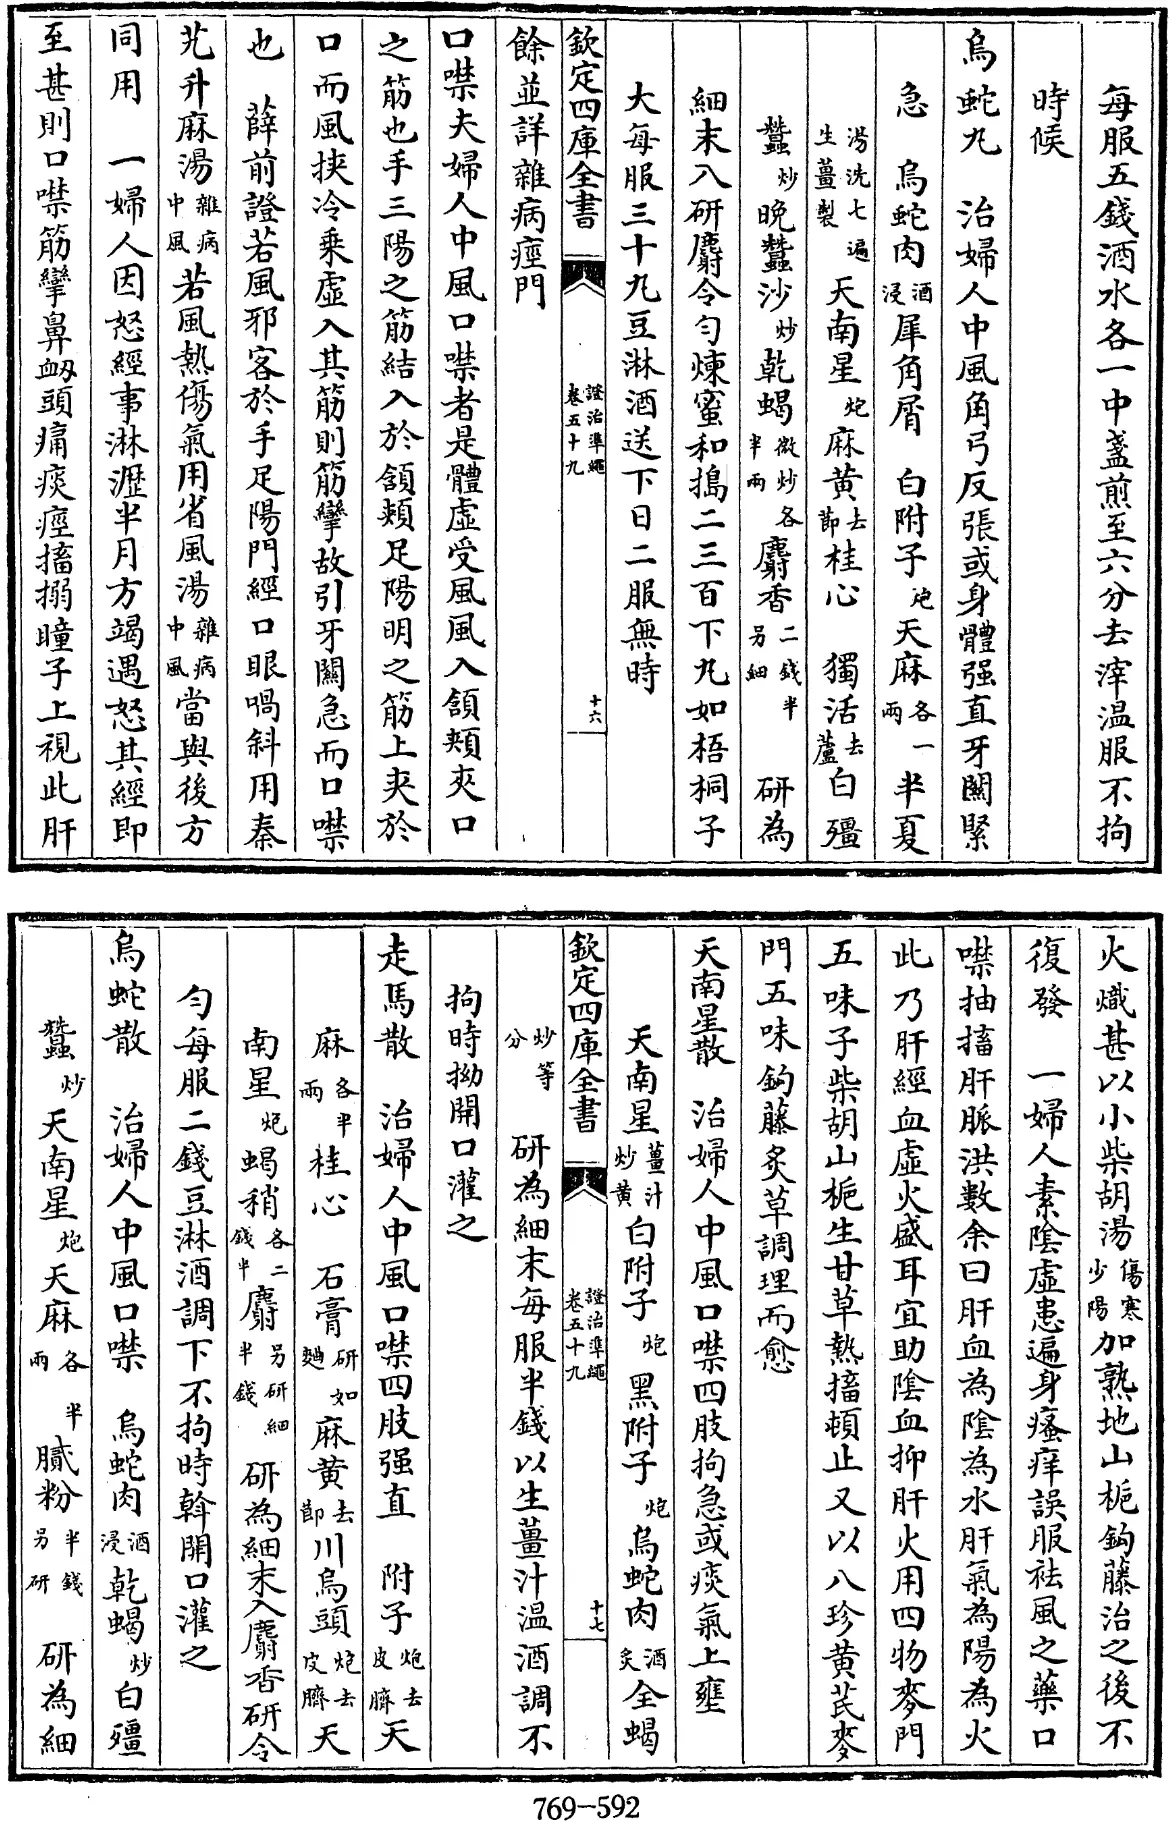 每服五錢酒水各一中盞煎至六分去滓温服不拘
時候
烏蛇丸　治婦人中風角弓反張或身體强直牙關緊
急　烏蛇肉酒浸犀角屑　白附子炮天麻各一兩半夏
湯洗七遍生薑製天南星炮麻黄去節桂心　獨活去蘆白殭
蠶炒晚蠶沙炒乾蝎微炒各半兩麝香二錢半另細　研為
細末入研麝令匀煉蜜和搗二三百下丸如梧桐子
大每服三十丸豆淋酒送下日二服無時
欽定四庫全書　證治準繩卷五十九　十六
餘並詳雜病痙門
口噤夫婦人中風口噤者是體虛受風風入頷頰夾口
之筋也手三陽之筋結入於頷頰足陽明之筋上夾於
口而風挾冷乘虛入其筋則筋攣故引牙關急而口噤
也　薛前證若風邪客於手足陽門經口眼喎斜用秦
艽升麻湯雜病中風若風熱傷氣用省風湯雜病中風當與後方
同用　一婦人因怒經事淋瀝半月方竭遇怒其經即
至甚則口噤筋攣鼻衂頭痛痰痙搐搦瞳子上視此肝
火熾甚以小柴胡湯傷寒少陽加熟地山梔鈎藤治之後不
復發　一婦人素陰虛患遍身瘙痒誤服祛風之藥口
噤抽搐肝脈洪數余曰肝血為陰為水肝氣為陽為火
此乃肝經血虛火盛耳宜助陰血抑肝火用四物麥門
五味子柴胡山梔生甘草熱搐頓止又以八珍黄芪麥
門五味鈎藤炙草調理而愈
天南星散　治婦人中風口噤四肢拘急或痰氣上壅
天南星薑汁炒黄白附子炮　黑附子炮烏蛇肉酒炙全蝎
欽定四庫全書　證治準繩卷五十九　十七
炒等分　研為細末每服半錢以生薑汁温酒調不
拘時拗開口灌之
走馬散　治婦人中風口噤四肢强直　附子炮去皮臍天
麻各半兩桂心　石膏研如麵麻黄去節川烏頭炮去皮臍天
南星炮蝎稍各二錢半麝另研細半錢　研為細末入麝香研令
匀每服二錢豆淋酒調下不拘時斡開口灌之
烏蛇散　治婦人中風口噤　烏蛇肉酒浸乾蝎炒白殭
蠶炒天南星炮天麻各半兩膩粉半錢另研　研為細
769-592